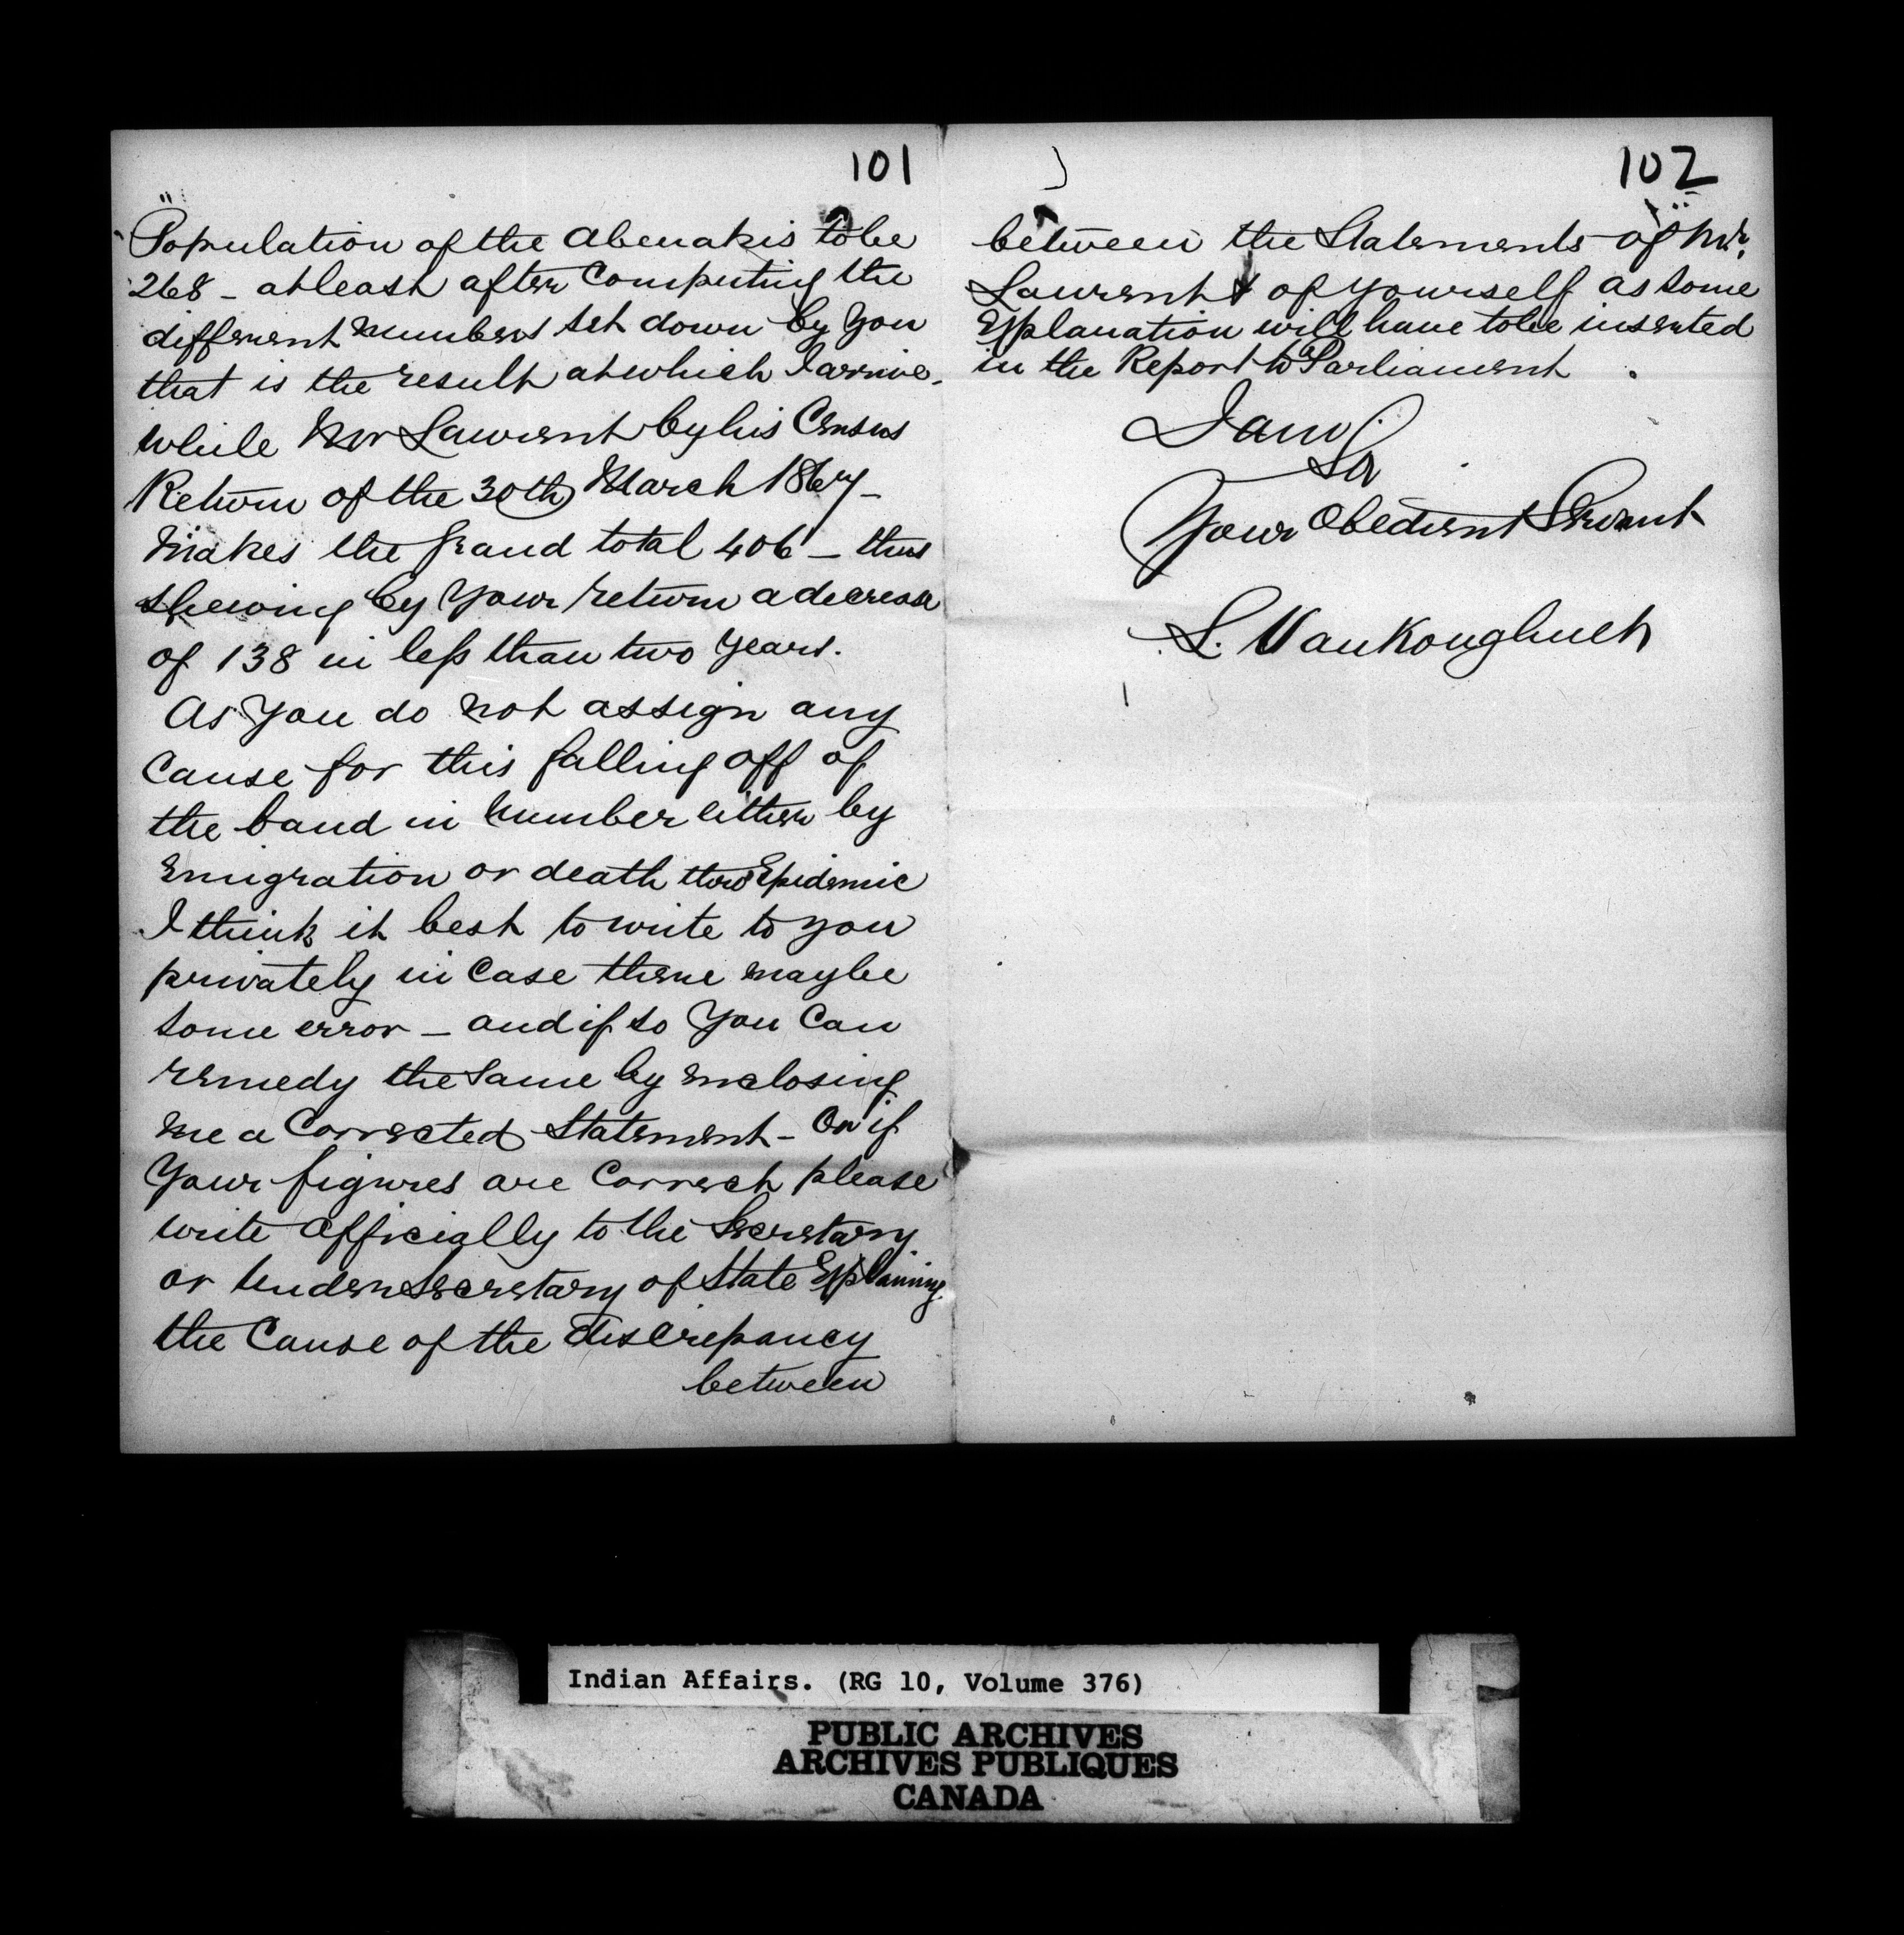 101
"Population of the Abenakis to be
268 - at least after Computing the
different numbers set down by you
that is the result at which I arrive -
while Mr Laurent by his Census
Return of the 30th March 1867 -
Makes the grand total 406 - thus
shewing by your return a decrease
of 138 in less than two years.
As you do not assign any
Cause for this falling off of
the band in number either by
Emigration or death thro Epidemic
I think it best to write to you
privately in Case there may be
some error - and if so you Can
remedy the same by enclosing
me a Corrected Statement - Or if
Your figures are Correct please
write officially to the Secretary
or Under Secretary of State Explaining
the Cause of the discrepancy
between
102
between the Statements of Mr.
Laurent & of yourself as some
Explanation will have to be inserted
in the Report to Parliament.
I am
Sir
Your Obedient Servant
L. VanKoughnet
Indian Affairs. (RG 10, Volume 376)
PUBLIC ARCHIVES
ARCHIVES PUBLIQUES
CANADA